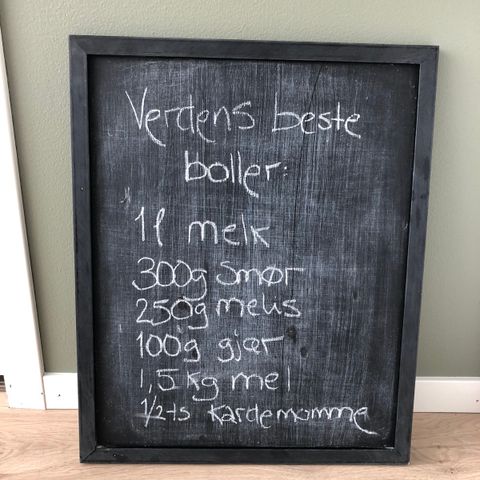 Verdens beste
boller:
1l melk
300g smør
250g melis
100g gjær
1,5 kg mel
1/2 ts kardemomme